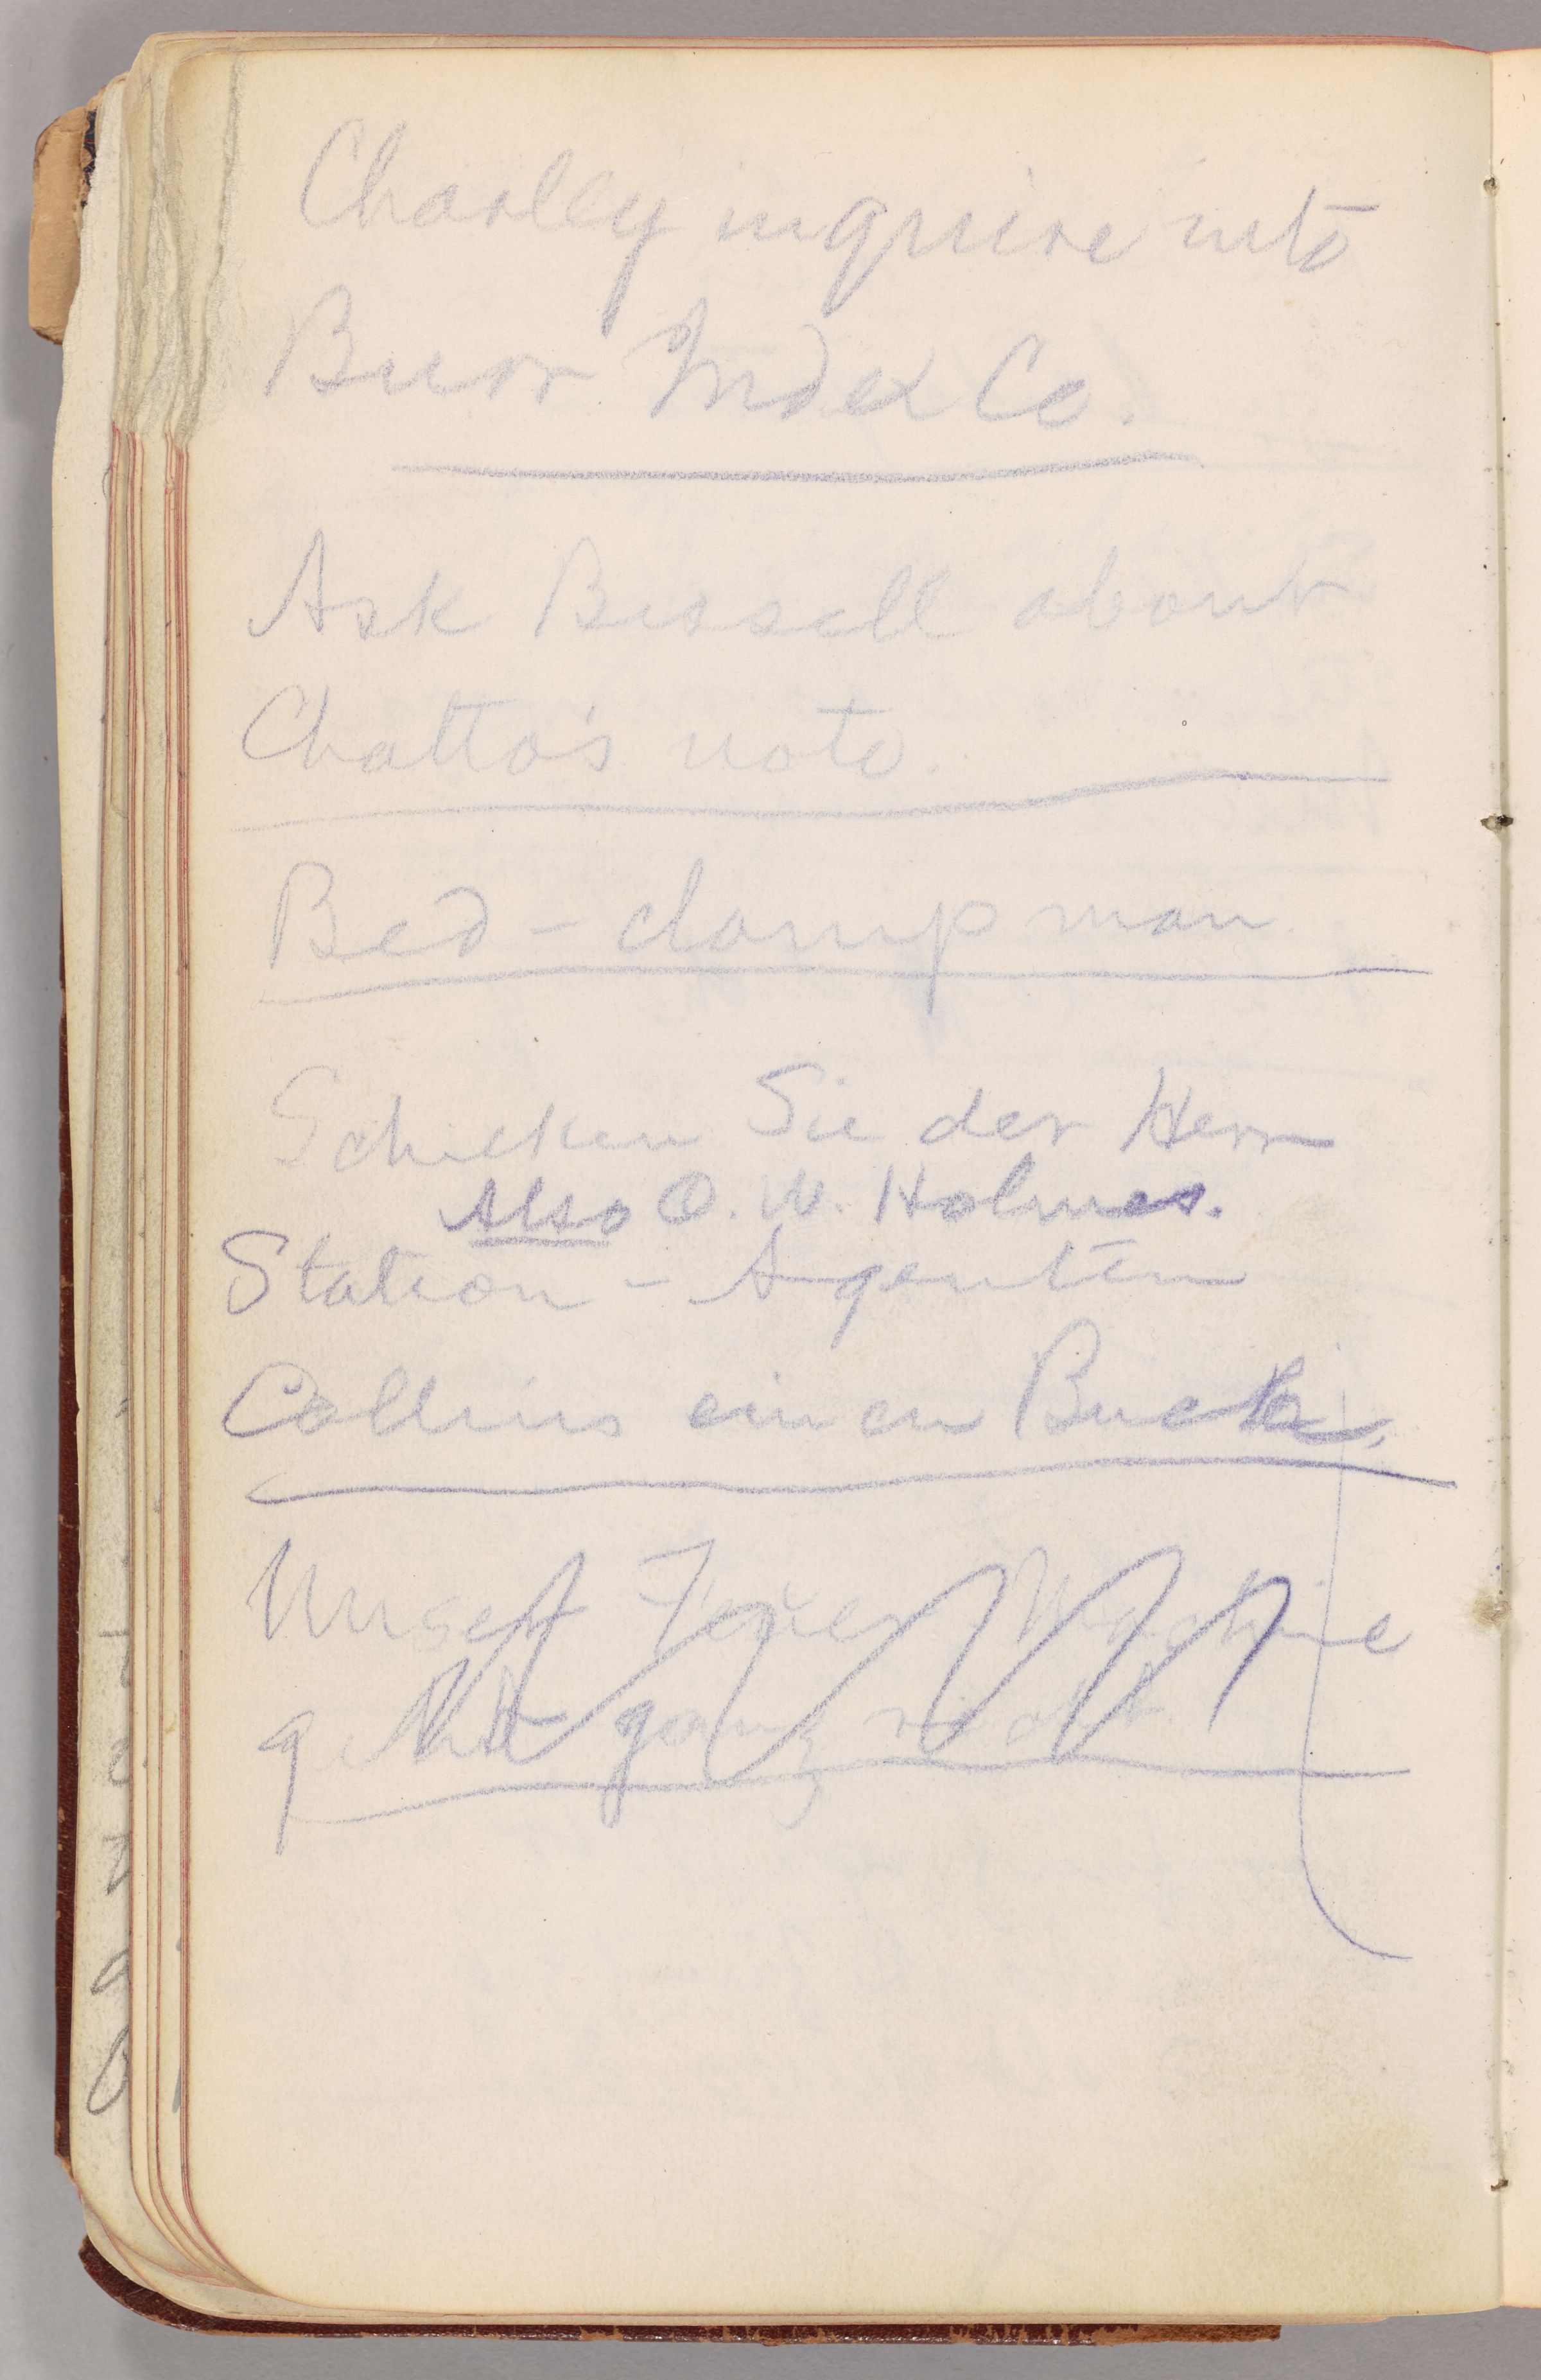 Charley inquire into
Burr Index Co.
Ask Bissell about
Chatto's note.
Bed-clamp man.
Schicken Sie der Herr
Also O. W. Holmes.
Station-Agenten
Collins einen Buch.
Unser Feuer Maschine
geht ganz nicht.